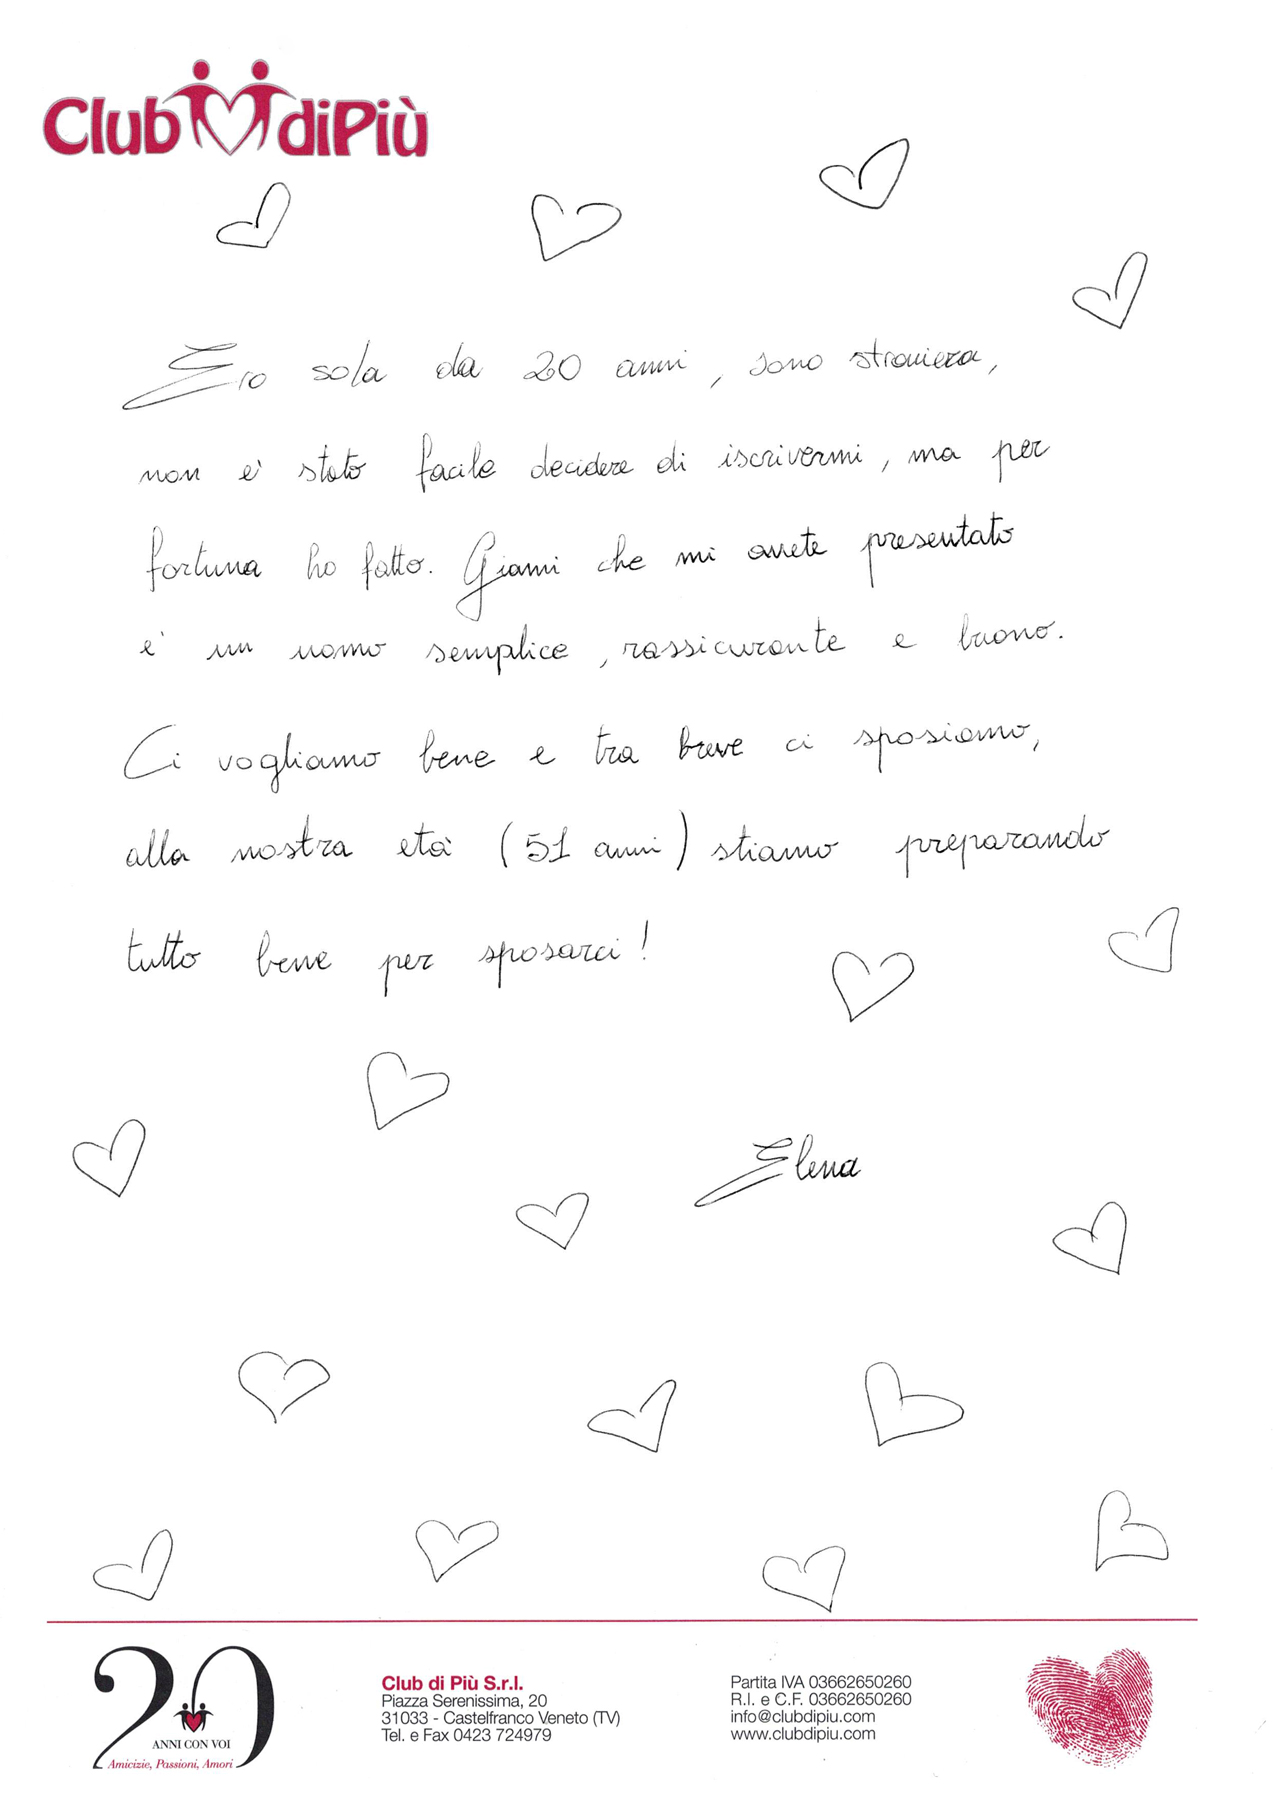 Club diPiù
Ero sola da 20 anni, sono straniera,
non è stato facile decidere di iscrivermi, ma per
fortuna ho fatto. Gianni che mi avete presentato
è un uomo semplice, rassicurante e buono.
Ci vogliamo bene e tra breve ci sposiamo,
alla nostra età (51 anni) stiamo preparando
tutto bene per sposarci!
Elena
20
ANNI CON VOI
Amicizie, Passioni, Amori
Club di Più S.r.l.
Piazza Serenissima, 20
31033 - Castelfranco Veneto (TV)
Tel. e Fax 0423 724979
Partita IVA 03662650260
R.I. e C.F. 03662650260
info@clubdipiu.com
www.clubdipiu.com